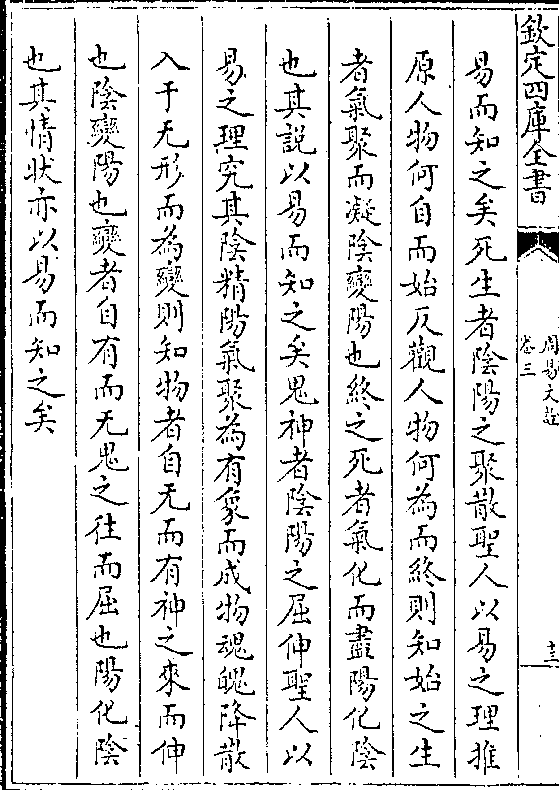 欽定四庫全書
周易文詮
卷三
十三
易而知之矣死生者陰陽之聚散聖人以易之理推
原人物何自而始反觀人物何為而終則知始之生
者氣聚而凝陰變陽也終之死者氣化而盡陽化陰
也其說以易而知之矣鬼神者陰陽之屈伸聖人以
易之理究其陰精陽氣聚為有象而成物魂魄降散
入于无形而為變則知物者自无而有神之來而伸
也陰變陽也變者自有而无鬼之往而屈也陽化陰
也其情狀亦以易而知之矣